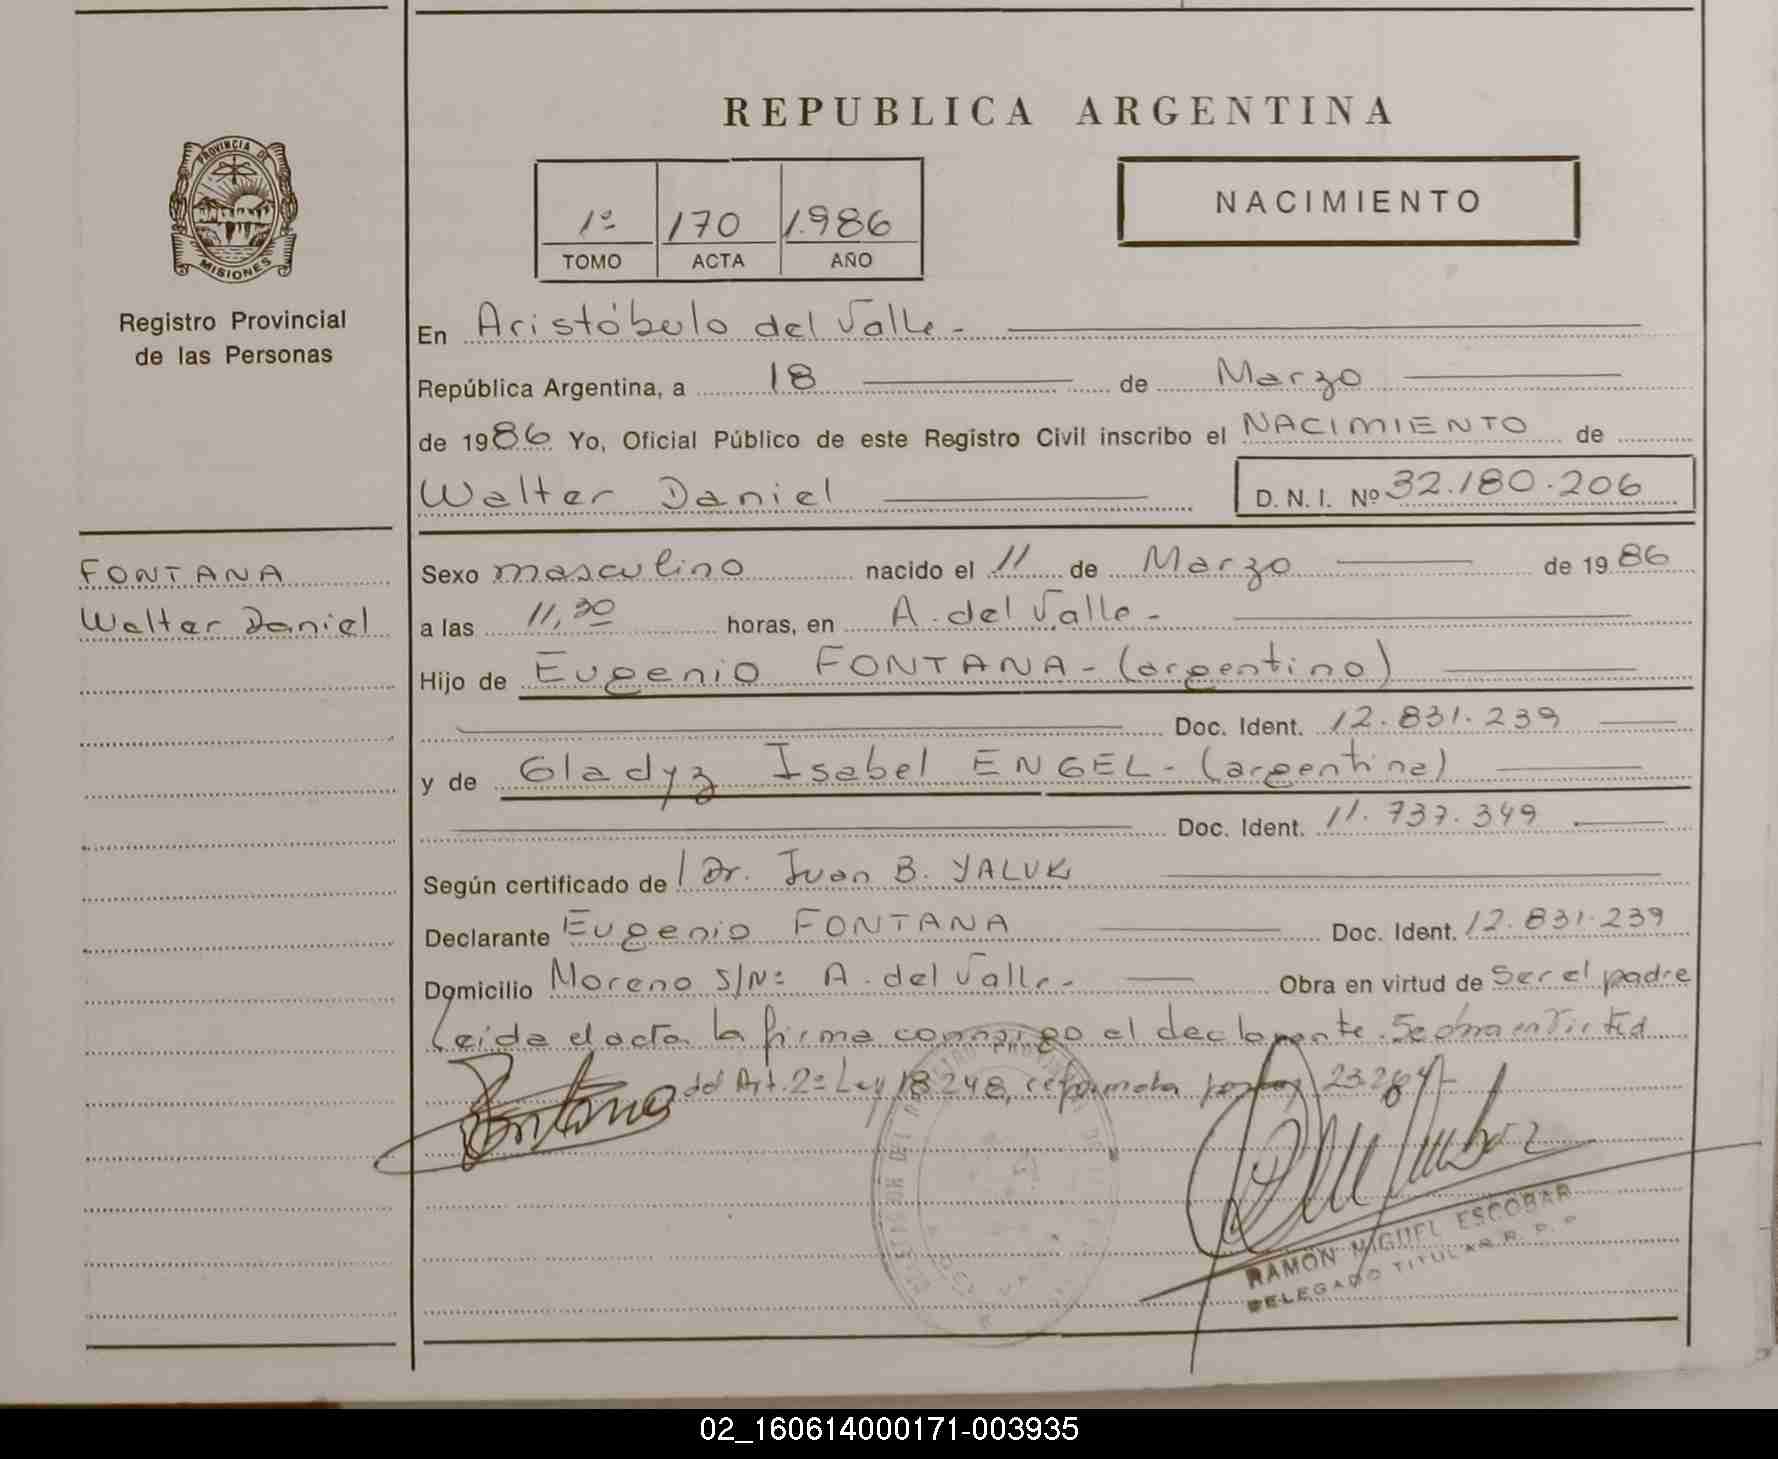 REPUBLICA ARGENTINA
PROVINCIA DE
MISIONES
Registro Provincial
de las Personas
1º 170 1.986
TOMO ACTA AÑO
NACIMIENTO
En Aristóbulo del Valle.-
República Argentina, a 18 de Marzo
de 1986 Yo, Oficial Público de este Registro Civil inscribo el NACIMIENTO de
Walter Daniel D. N. I. Nº 32.180.206
FONTANA
Walter Daniel
Sexo masculino nacido el 11 de Marzo de 1986
a las 11,30 horas, en A. del Valle.-
Hijo de Eugenio FONTANA - (argentino)
Doc. Ident. 12.831.239
y de Gladyz Isabel ENGEL - (argentina)
Doc. Ident. 11.737.349
Según certificado de Dr. Juan B. YALUK
Declarante Eugenio FONTANA Doc. Ident. 12.831.239
Domicilio Moreno S/Nº A. del Valle.- Obra en virtud de Ser el padre
Leida el acta la firma conmigo el declarante.
del Art. 2º Ley 18248, reformada por Ley 23.264-
Fontana
RAMON MIGUEL ESCOBAR
DELEGADO TITULAR R. P. P.
02_160614000171-003935